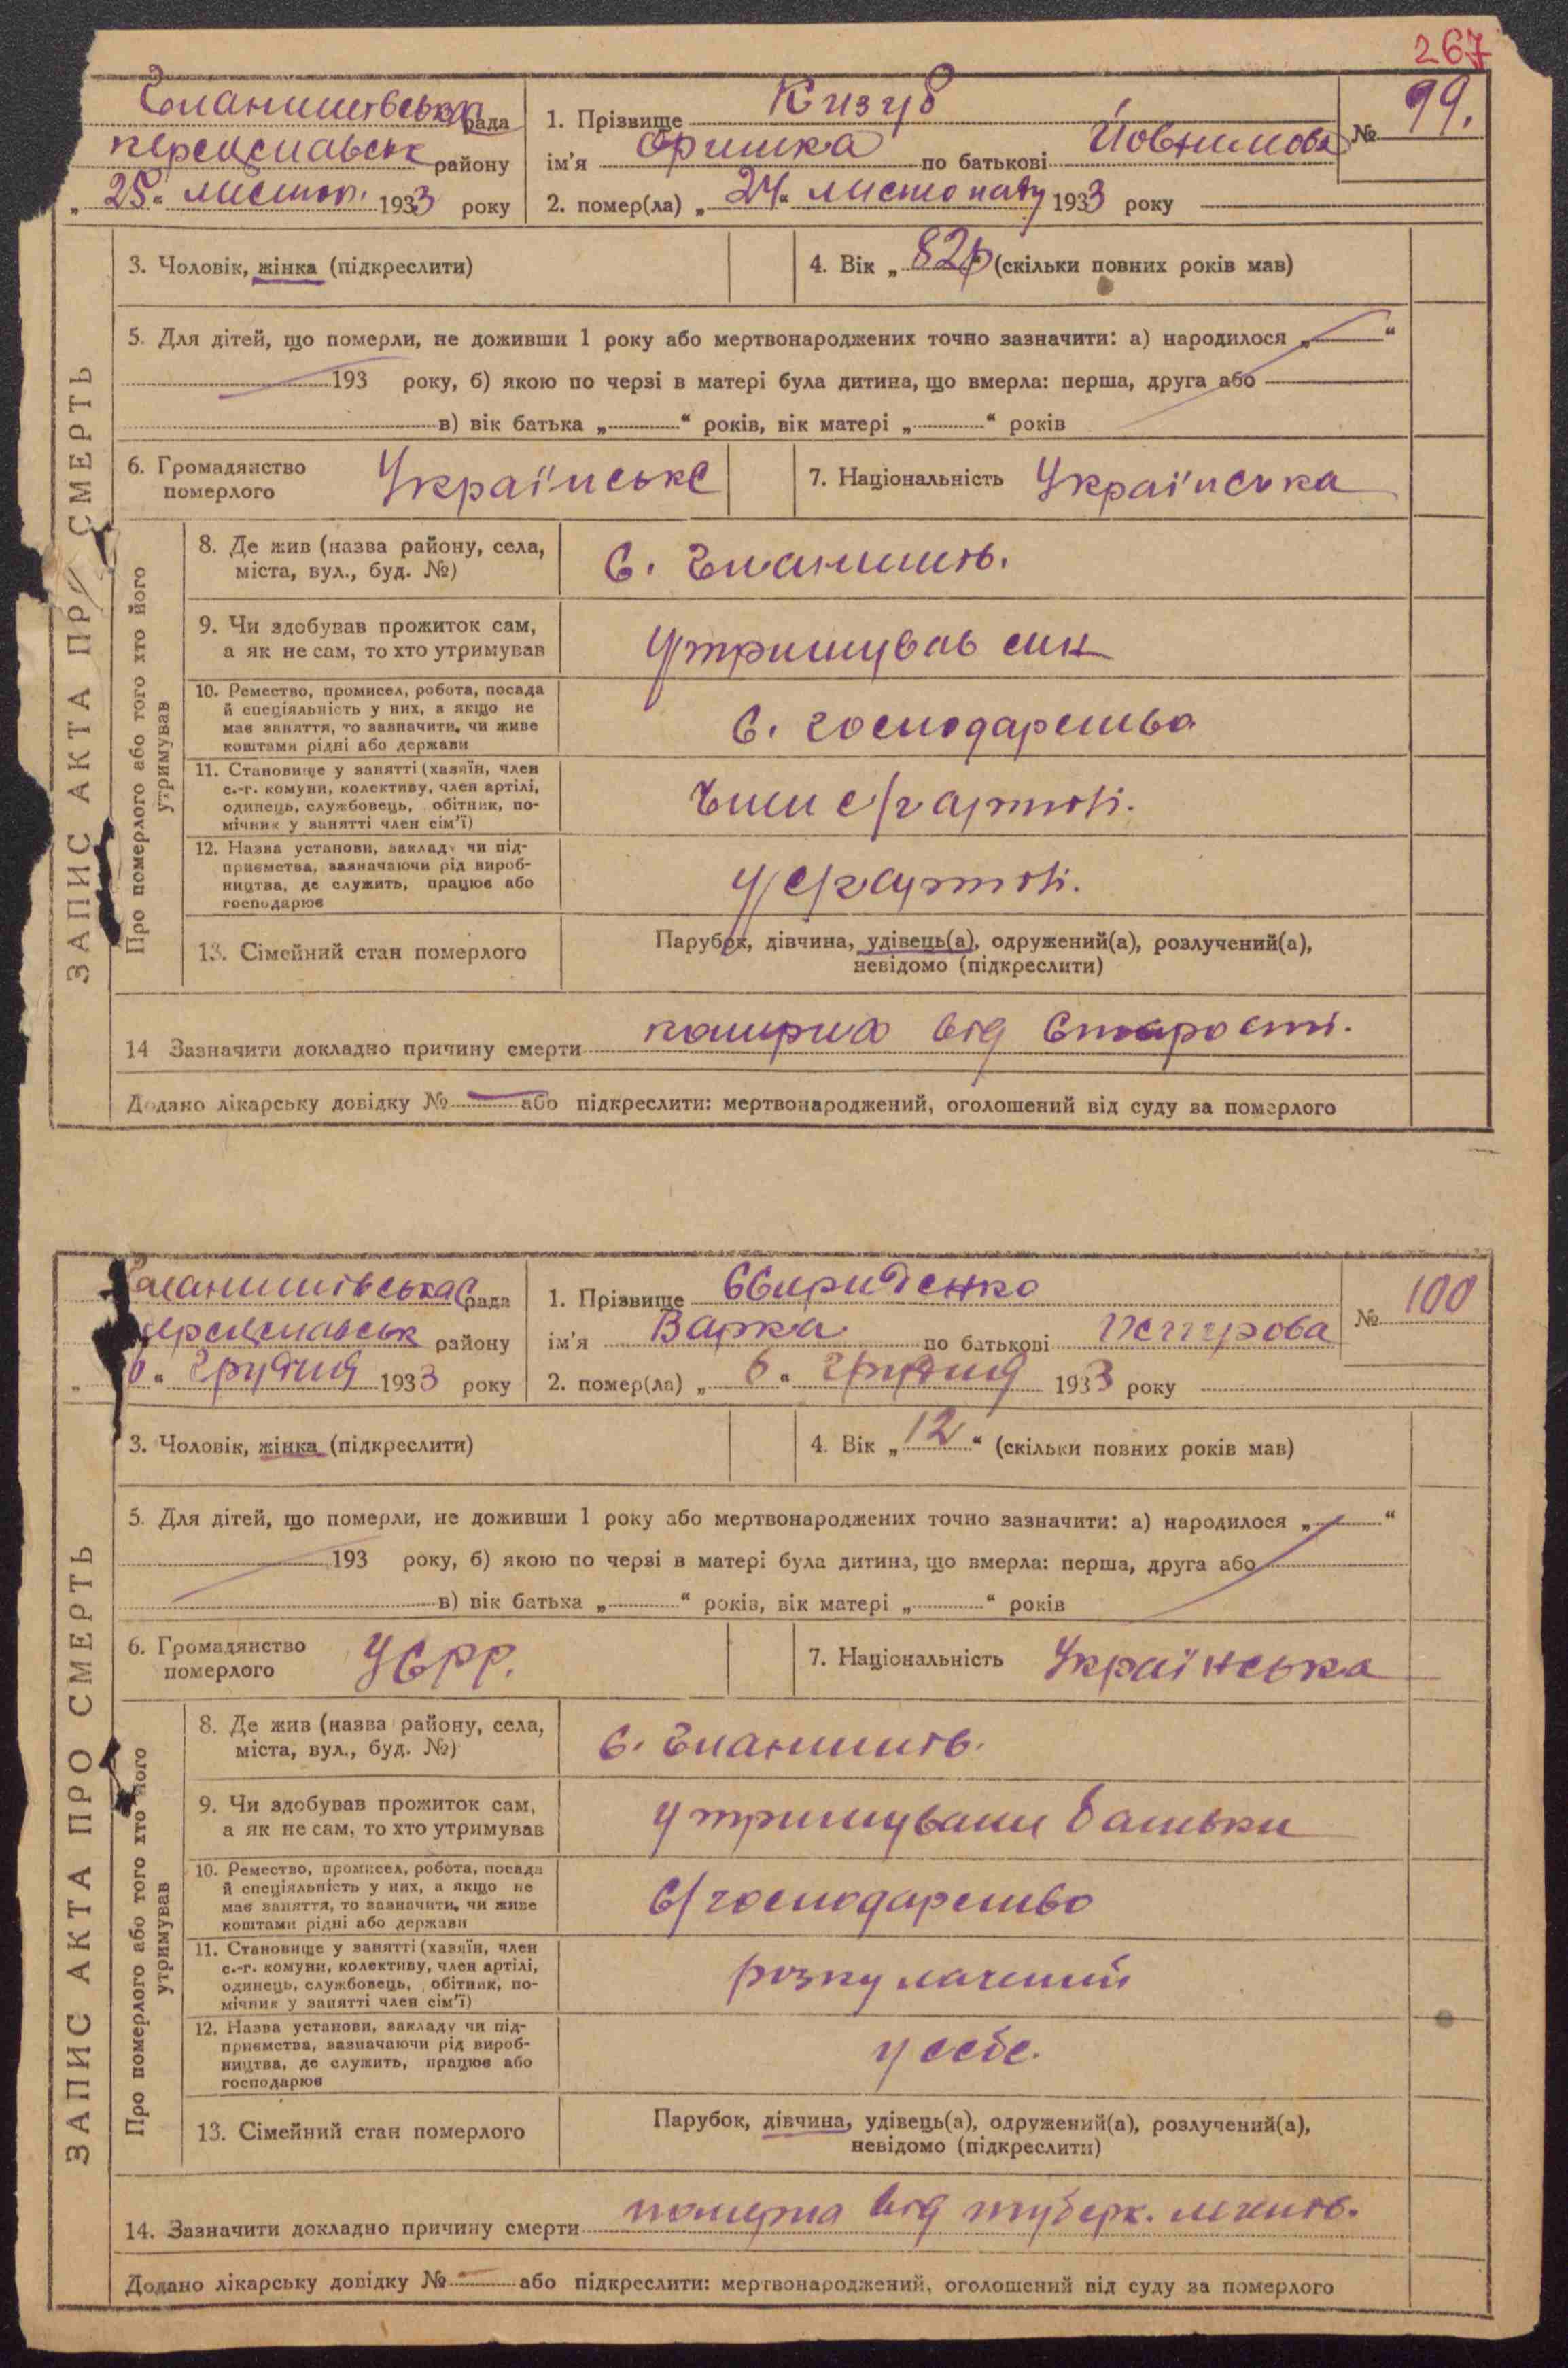 267
Єланишівська рада
переяславськ району
„ 25 “ листоп. 1933 року
1. Прізвище Кизуб
ім'я Оришка по батькові Йовхимова
№ 99.
2. помер(ла) „ 24 “ листопаду 1933 року
ЗАПИС АКТА ПРО СМЕРТЬ
3. Чоловік, жінка (підкреслити)
4. Вік „ 82р “ (скільки повних років мав)
5. Для дітей, що померли, не доживши 1 року або мертвонароджених точно зазначити: а) народилося „ “
193 року, б) якою по черзі в матері була дитина, що вмерла: перша, друга або
в) вік батька „ “ років, вік матері „ “ років
6. Громадянство
померлого
Українське
7. Національність Українська
Про померлого або того хто його
утримував
8. Де жив (назва району, села,
міста, вул., буд. №)
С. Гланишів.
9. Чи здобував прожиток сам,
а як не сам, то хто утримував
Утримував син
10. Ремество, промисел, робота, посада
й спеціяльність у них, а якщо не
має заняття, то зазначити, чи живе
коштами рідні або держави
С. господарство
11. Становище у занятті (хазяїн, член
с.-г. комуни, колективу, член артілі,
одинець, службовець, обітник, по-
мічник у занятті член сім'ї)
Член с/г артілі.
12. Назва установи, закладу чи під-
приємства, зазначаючи рід вироб-
ництва, де служить, працює або
господарює
у с/г артілі.
13. Сімейний стан померлого
Парубок, дівчина, удівець(а), одружений(а), розлучений(а),
невідомо (підкреслити)
14 Зазначити докладно причину смерти помирла від Старості.
Додано лікарську довідку № або підкреслити: мертвонароджений, оголошений від суду за померлого
Гланишівська рада
переяславськ району
„ 6 “ грудня 1933 року
1. Прізвище Свириденко
ім'я Варка по батькові
№ 100
2. помер(ла) „ 6 “ грудня 1933 року
ЗАПИС АКТА ПРО СМЕРТЬ
3. Чоловік, жінка (підкреслити)
4. Вік „ 12 “ (скільки повних років мав)
5. Для дітей, що померли, не доживши 1 року або мертвонароджених точно зазначити: а) народилося „ “
193 року, б) якою по черзі в матері була дитина, що вмерла: перша, друга або
в) вік батька „ “ років, вік матері „ “ років
6. Громадянство
померлого
УСРР.
7. Національність Українська
Про померлого або того хто його
утримував
8. Де жив (назва району, села,
міста, вул., буд. №)
С. Гланишів.
9. Чи здобував прожиток сам,
а як не сам, то хто утримував
утримували батьки
10. Ремество, промисел, робота, посада
й спеціяльність у них, а якщо не
має заняття, то зазначити, чи живе
коштами рідні або держави
С/господарство
11. Становище у занятті (хазяїн, член
с.-г. комуни, колективу, член артілі,
одинець, службовець, обітник, по-
мічник у занятті член сім'ї)
розкулачений
12. Назва установи, закладу чи під-
приємства, зазначаючи рід вироб-
ництва, де служить, працює або
господарює
у себе.
13. Сімейний стан померлого
Парубок, дівчина, удівець(а), одружений(а), розлучений(а),
невідомо (підкреслити)
14. Зазначити докладно причину смерти померла від туберк. легенів.
Додано лікарську довідку № або підкреслити: мертвонароджений, оголошений від суду за померлого